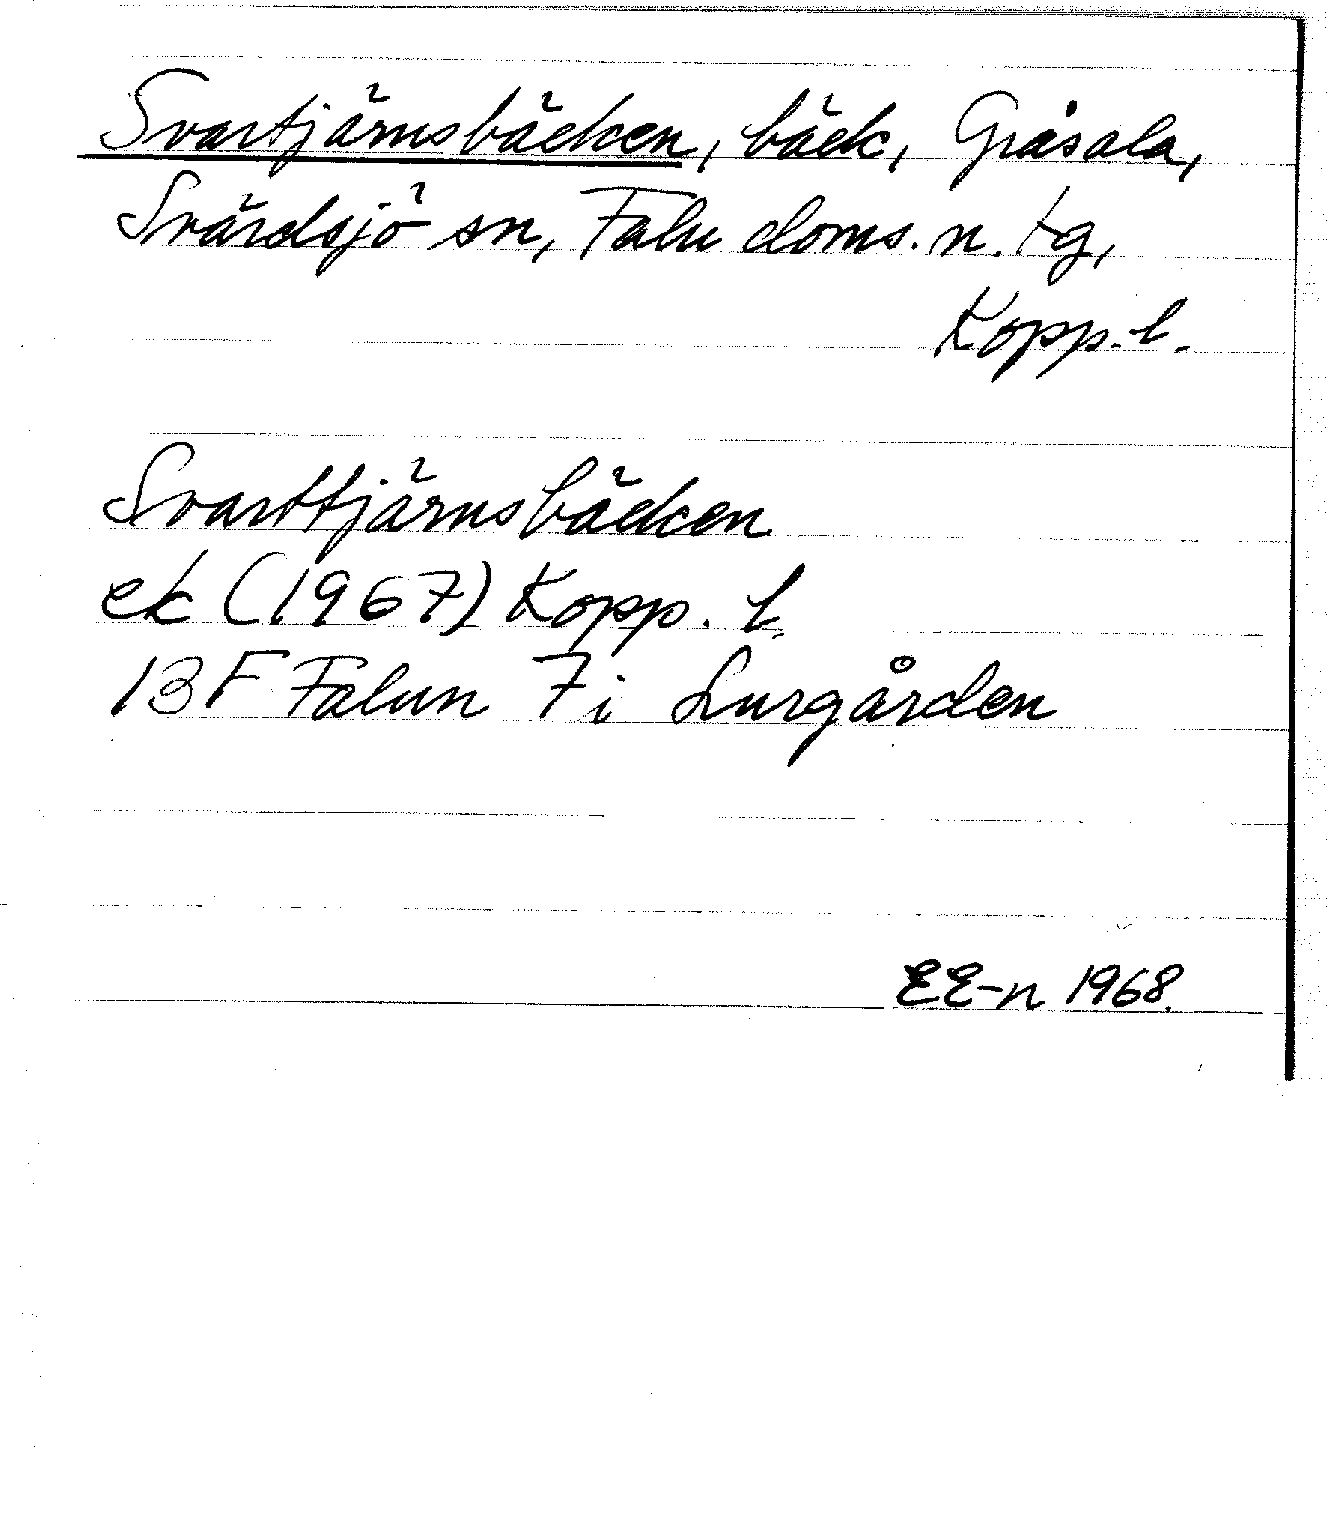 Svartjärnsbäcken, bäck, Gråsala,
Svärdsjö sn, Falu doms. n. tg,
Kopp. l.
Svarttjärnsbäcken
ek (1967) Kopp. l
13F Falun 7i Lurgården
EE-n 1968.